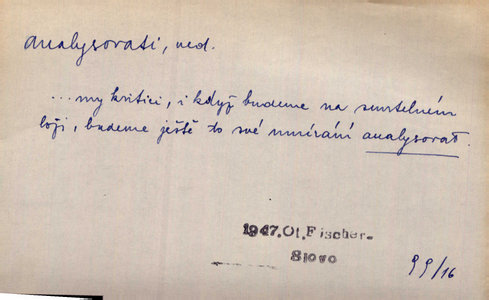 analysovati, ned.
...my kritici, i když budeme na smrtelném
loži, budeme ještě to své umírání analysovat.
1947.Ot.Fischer-
Slovo
99/16